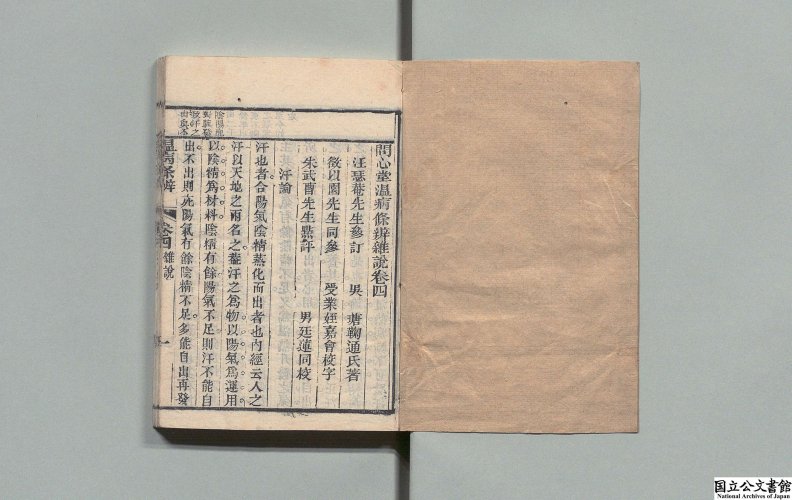 問心堂溫病條辨雜說卷四
汪瑟菴先生參訂 吳 瑭鞠通氏著
徵以園先生同參 受業姪嘉會校字
朱武曹先生點評 男廷蓮同校
汗論
汗也者合陽氣陰精蒸化而出者也內經云人之
汗以天地之雨名之蓋汗之為物以陽氣為運用
以陰精為材料陰精有餘陽氣不足則汗不能自
出不出則死陽氣有餘陰精不足多能自出再發
溫病條辨 卷四 雜說 一
国立公文書館
National Archives of Japan